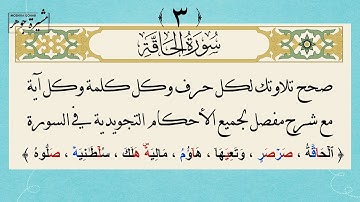 MOSHIRA GOHAR
مشيرة جوهر
﴿ ٣ ﴾
سُورَةُ الحَاقَّةِ
صحح تلاوتك لكل حرف وكل كلمة وكل آية
مع شرح مفصل لجميع الأحكام التجويدية في السورة
﴿ ٱلْحَاقَّةُ ، صَرْصَرٍ ، وَتَعِيَهَا ، هَآؤُمُ ، مَالِيَهْ ۜ هَلَكَ ، سُلْطَٰنِيَهْ ، صَلُّوهُ ﴾